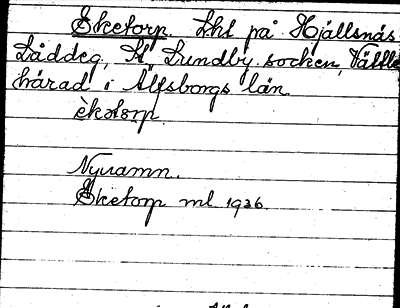 Eketorp. Lht på Hjällsnäs
Låddeg, St Lundby socken, Vättle
härad i Älfsborgs län
èkətorp
Nynamn.
Eketorp ml 1936